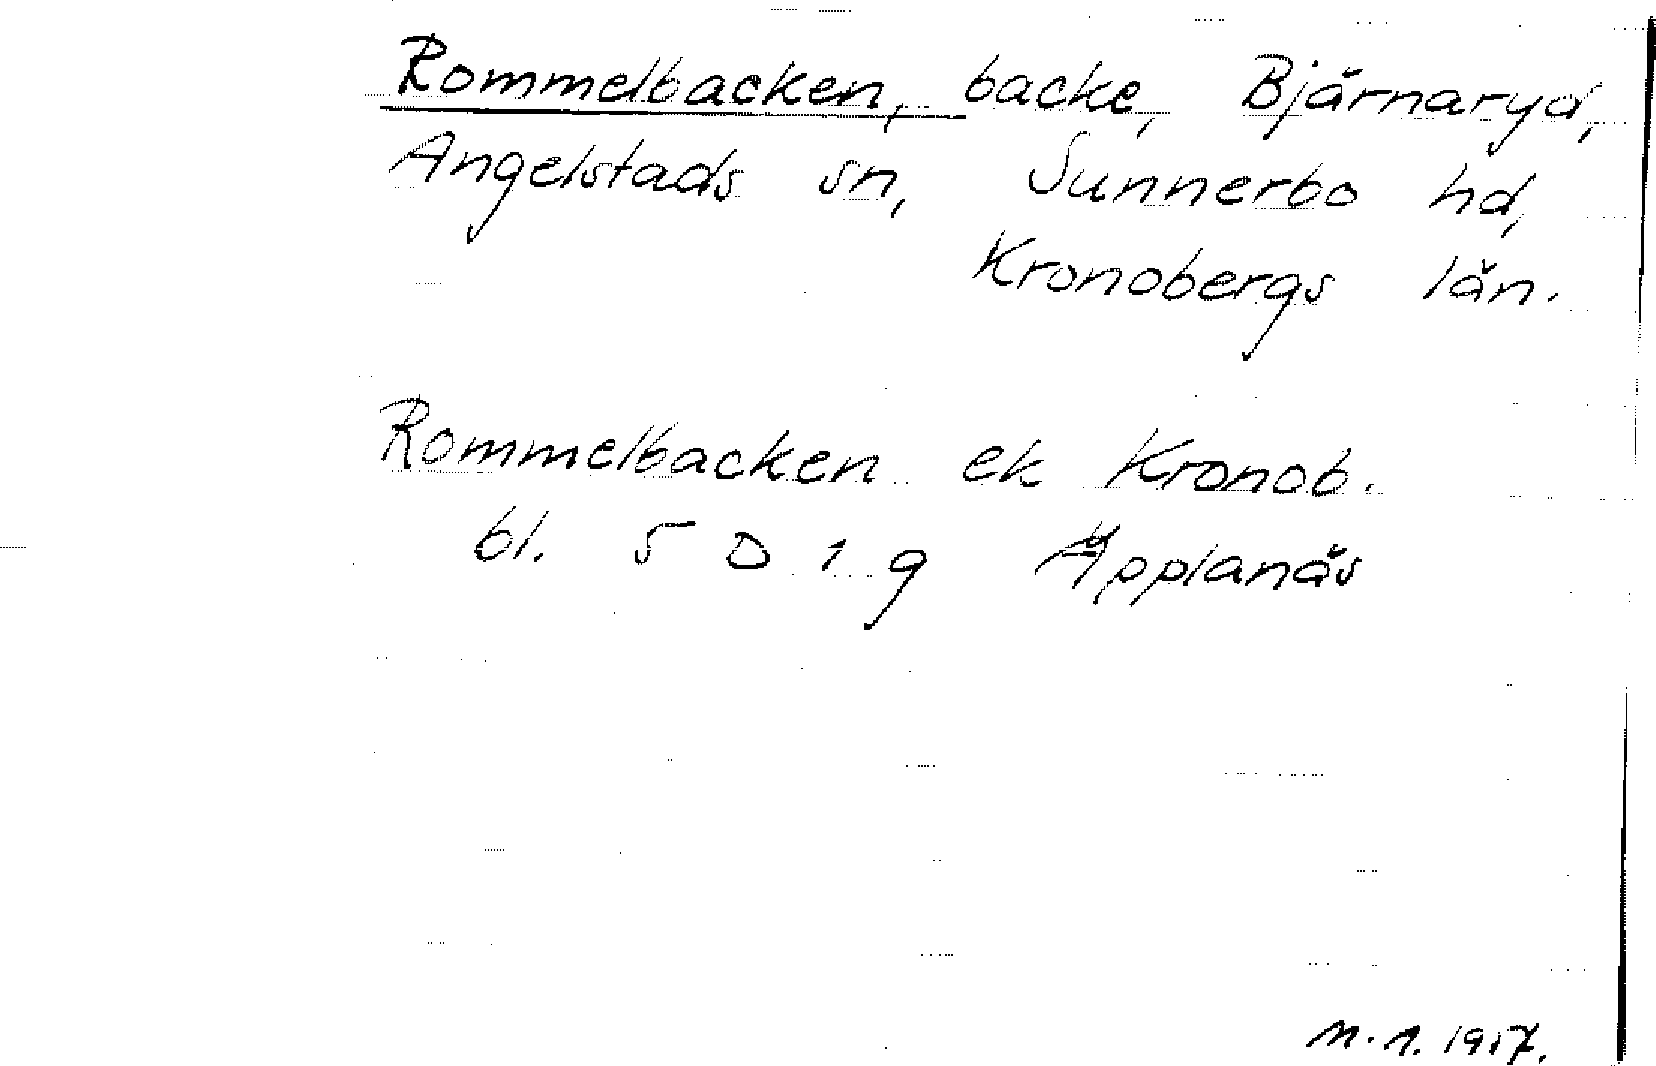 Rommelbacken, backe, Bjärnaryd,
Angelstads sn, Sunnerbo hd,
Kronobergs län.
Rommelbacken ek Kronob.
bl. 5 D 1 g Äpplanäs
n. 1. 1917.